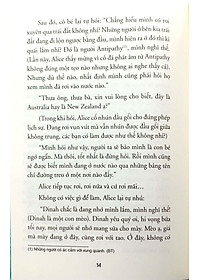 Sau đó, cô bé lại tự hỏi: "Chẳng hiểu mình có rơi
xuyên qua trái đất không nhỉ! Những người khôn kia trụ
đất đang đi lộn ngược bằng đầu, mình hiện ra ở đó thì kì
quái lắm nhỉ! Đó là người Antipathy⁽¹⁾, mình nghĩ thế.
(Lần này, Alice thấy mừng vì cô đã phát âm từ Antipathy
không đúng một tẹo nào nhưng không ai nghe thấy cả).
Nhưng dù thế nào, nhất định mình cũng phải hỏi họ
xem mình đã rơi vào nước nào?
"Thưa ông, thưa bà, xin vui lòng cho biết, đây là
Australia hay là New Zealand ạ!"
(Trong khi hỏi, Alice cố nhún đầu gối cho đúng phép
lịch sự. Đang rơi vun vút mà vẫn nhún được đầu gối giữa
không trung, các bạn có làm được như thế không?).
"Mình hỏi như vậy, người ta sẽ bảo mình là con bé
ngu ngốc! Không, nhất định là đừng hỏi. Rồi mình cũng
sẽ được biết mình đang ở nước nào qua những tấm bảng
chỉ đường treo ở một nơi nào đấy".
Alice tiếp tục rơi, rơi nữa và cứ rơi mãi...
Không có việc gì để làm, Alice lại tự nhủ:
"Dinah chắc là đang nhớ mình lắm, mình nghĩ thế!
(Dinah là một con mèo). Dinah yêu quý ơi, hi vọng bữa
tối nay, mọi người sẽ không quên cho mày sữa. Mèo ạ,
giá mà mày đang ở đây, cùng rơi với tao. Ở đây, không có
(1) Những người có ác cảm với xung quanh. (BT).
14